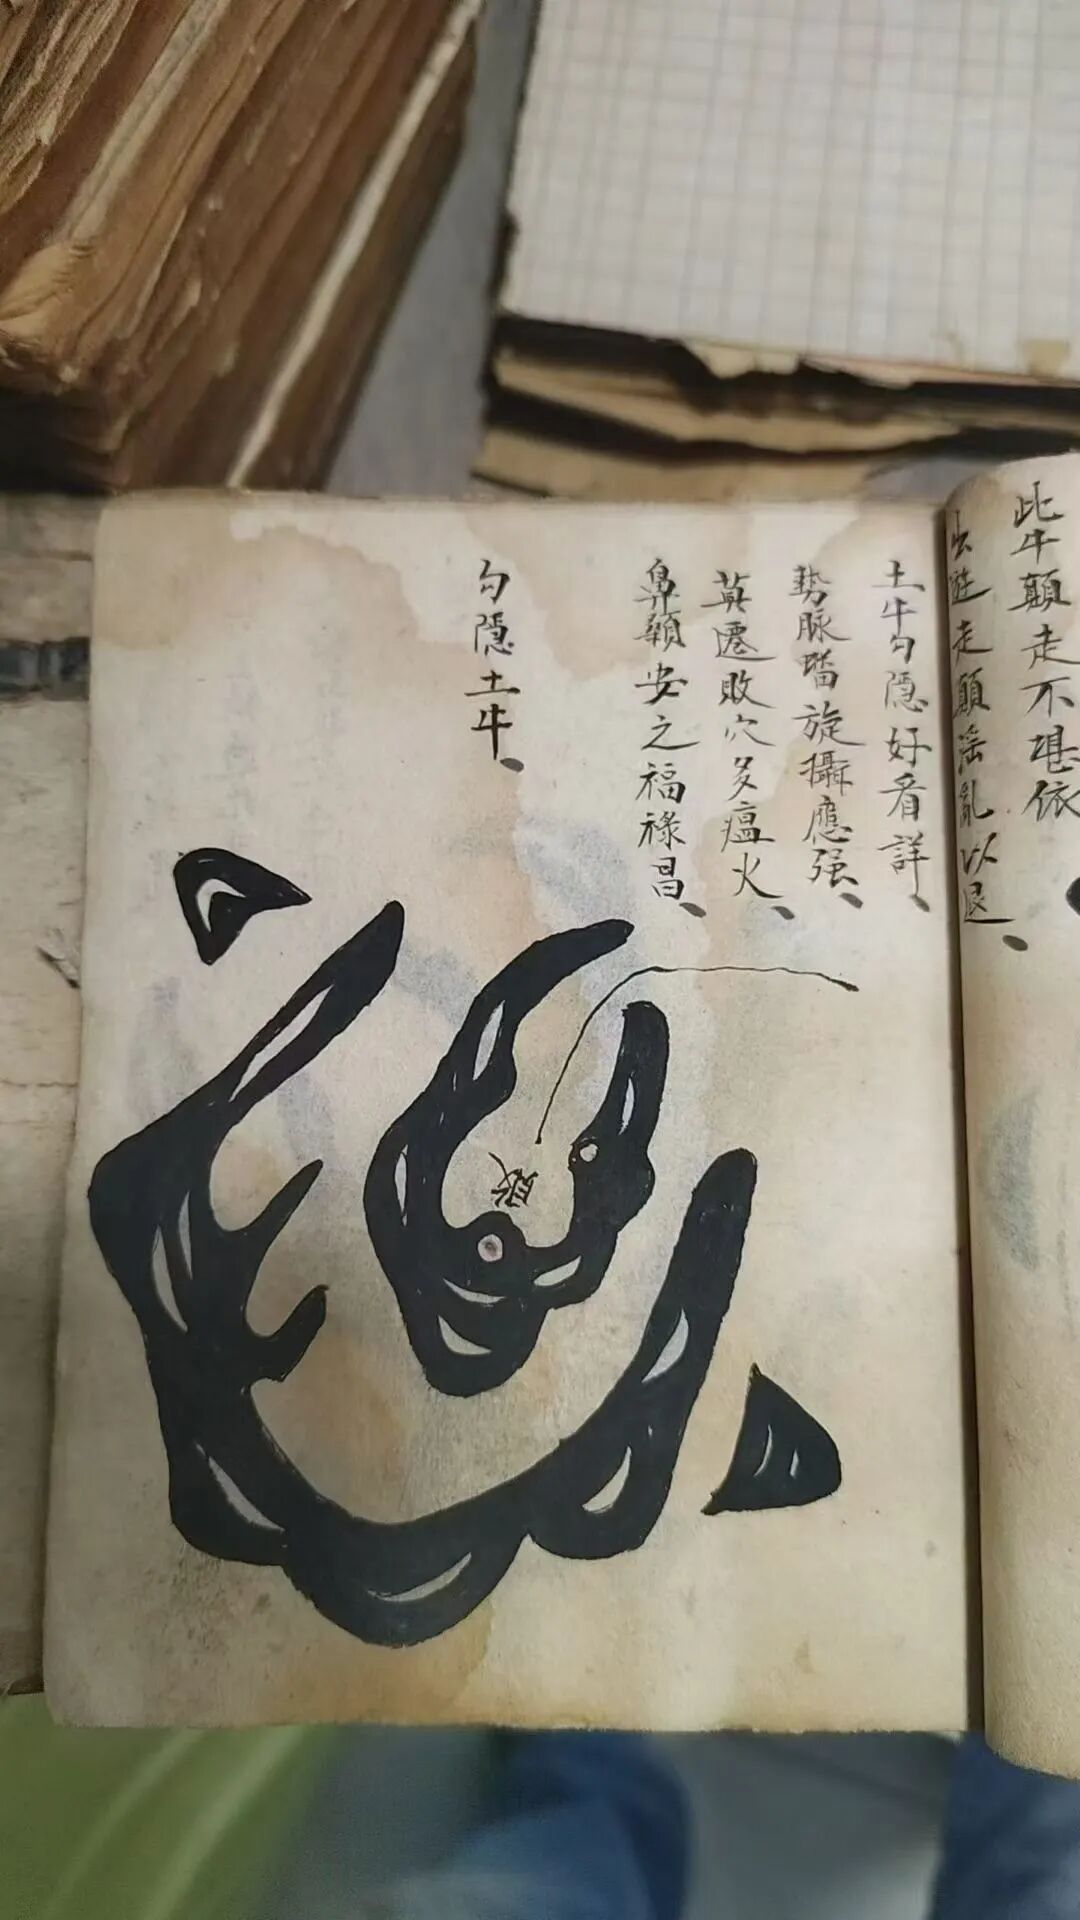 此牛顛走不堪依
去遊走顛滛亂以退
土牛勾隱好看詳
勢脉㽞旋攝應强
莫遷敗穴多瘟火
鼻顙安之福祿昌
勾隱土牛
敗